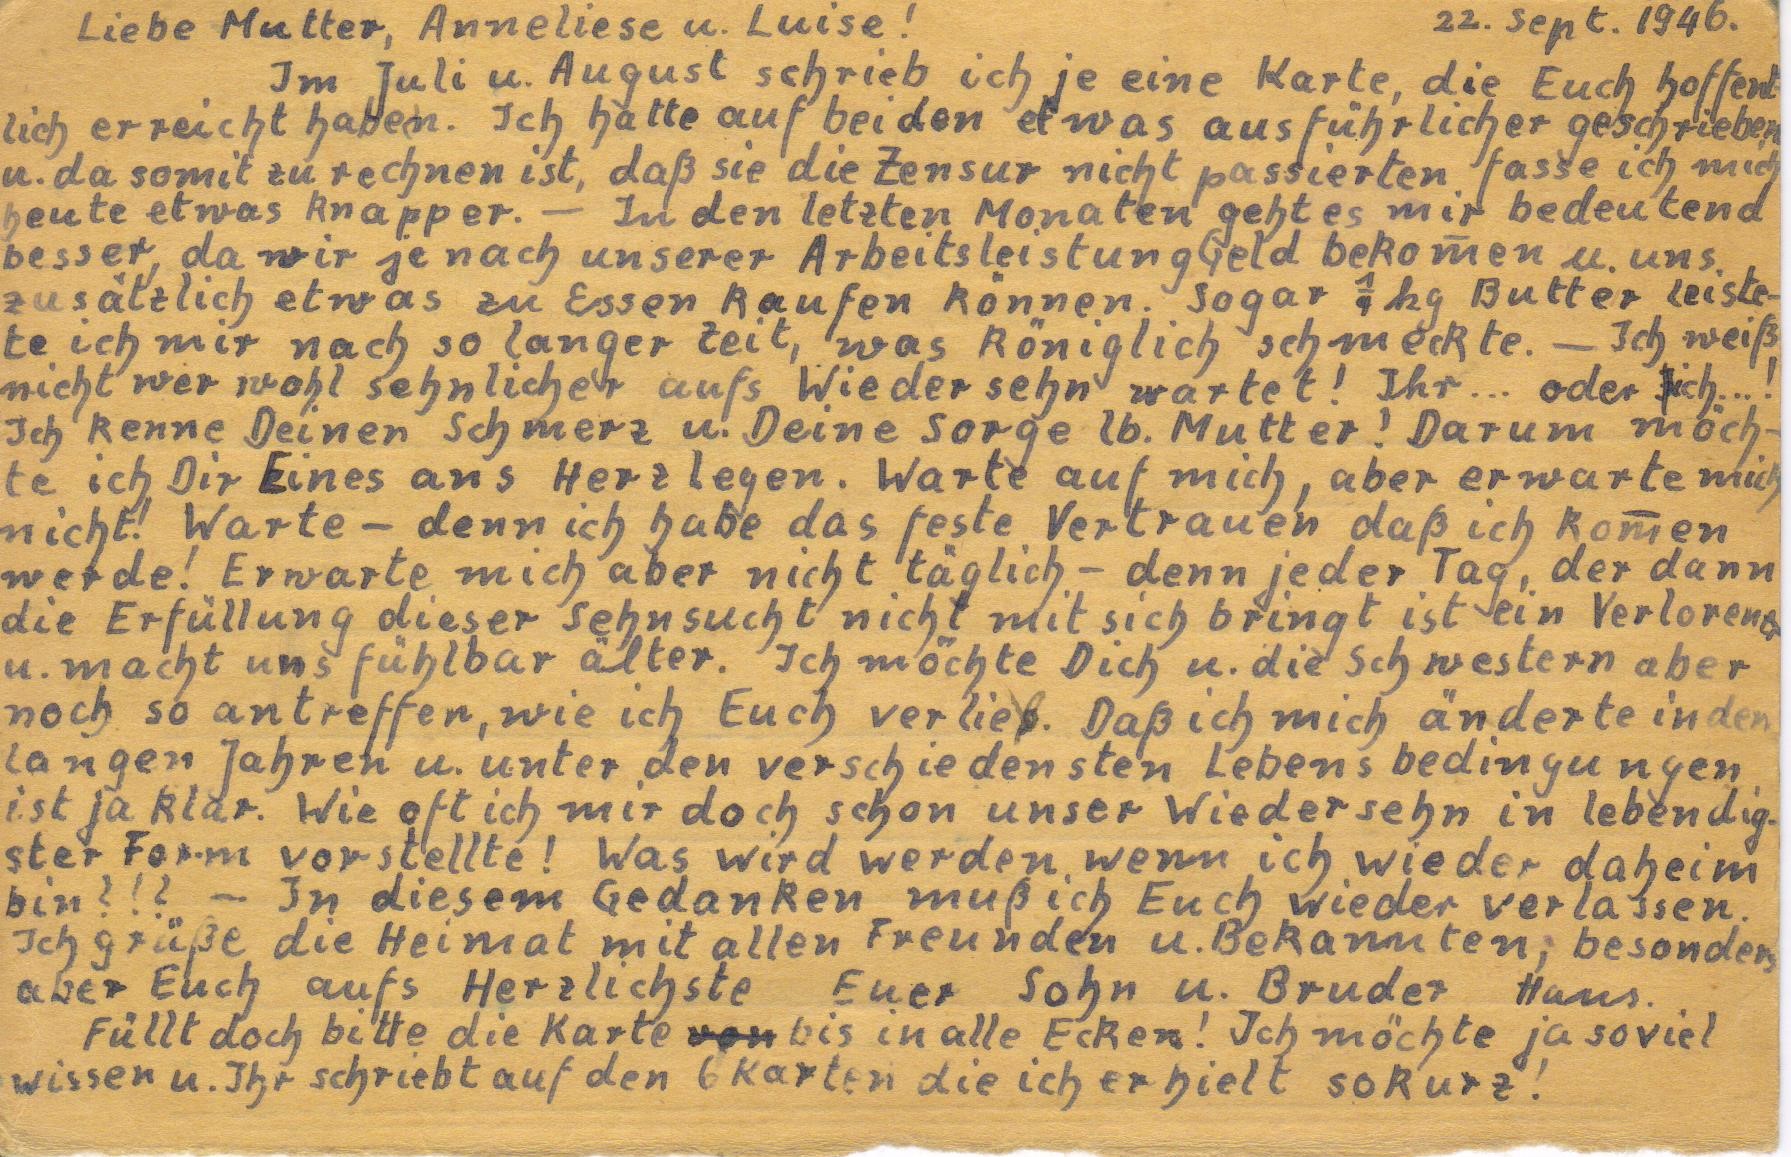 Liebe Mutter, Anneliese u. Luise! 22. Sept. 1946.
Im Juli u. August schrieb ich je eine Karte, die Euch hoffent-
lich erreicht haben. Ich hatte auf beiden etwas ausführlicher geschrieben
u. da somit zu rechnen ist, daß sie die Zensur nicht passierten fasse ich mich
heute etwas knapper. — In den letzten Monaten geht es mir bedeutend
besser, da wir je nach unserer Arbeitsleistung Geld bekom̄en u. uns
zusätzlich etwas zu Essen kaufen können. Sogar ¼ kg Butter leiste-
te ich mir nach so langer Zeit, was königlich schmeckte. — Ich weiß
nicht wer wohl sehnlicher aufs Wiedersehn wartet! Ihr... oder ich...!
Ich kenne Deinen Schmerz u. Deine Sorge lb. Mutter! Darum möch-
te ich Dir Eines ans Herz legen. Warte auf mich, aber erwarte mich
nicht! Warte – denn ich habe das feste Vertrauen daß ich kom̄en
werde! Erwarte mich aber nicht täglich – denn jeder Tag, der dann
die Erfüllung dieser Sehnsucht nicht mit sich bringt ist ein Verlorener
u. macht uns fühlbar älter. Ich möchte Dich u. die Schwestern aber
noch so antreffen, wie ich Euch verließ. Daß ich mich änderte in den
langen Jahren u. unter den verschiedensten Lebensbedingungen
ist ja klar. Wie oft ich mir doch schon unser Wiedersehn in lebendig-
ster Form vorstellte! Was wird werden, wenn ich wieder daheim
bin?!? — In diesem Gedanken muß ich Euch wieder verlassen.
Ich grüße die Heimat mit allen Freunden u. Bekannten, besonders
aber Euch aufs Herzlichste Euer Sohn u. Bruder Hans.
Füllt doch bitte die Karte von bis in alle Ecken! Ich möchte ja soviel
wissen u. Ihr schriebt auf den 6 Karten die ich erhielt so kurz!